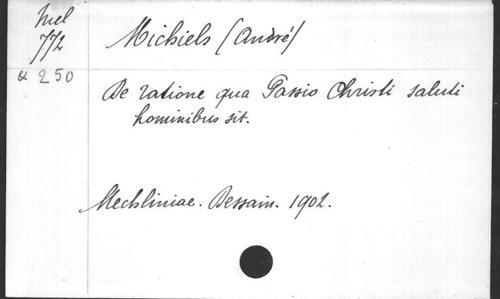 Mel
772
& 250
Michiels (André)
De ratione qua Passio Christi saluti
hominibus sit.
Mechliniae. Dessain. 1902.